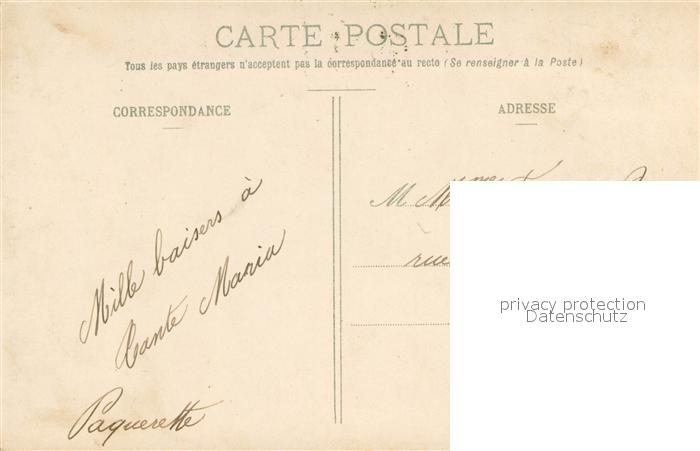 CARTE POSTALE
Tous les pays étrangers n'acceptent pas la correspondance au recto (Se renseigner à la Poste)
CORRESPONDANCE
ADRESSE
Mille baisers à
Tante Maria
Paquerette
M
rue
privacy protection
Datenschutz